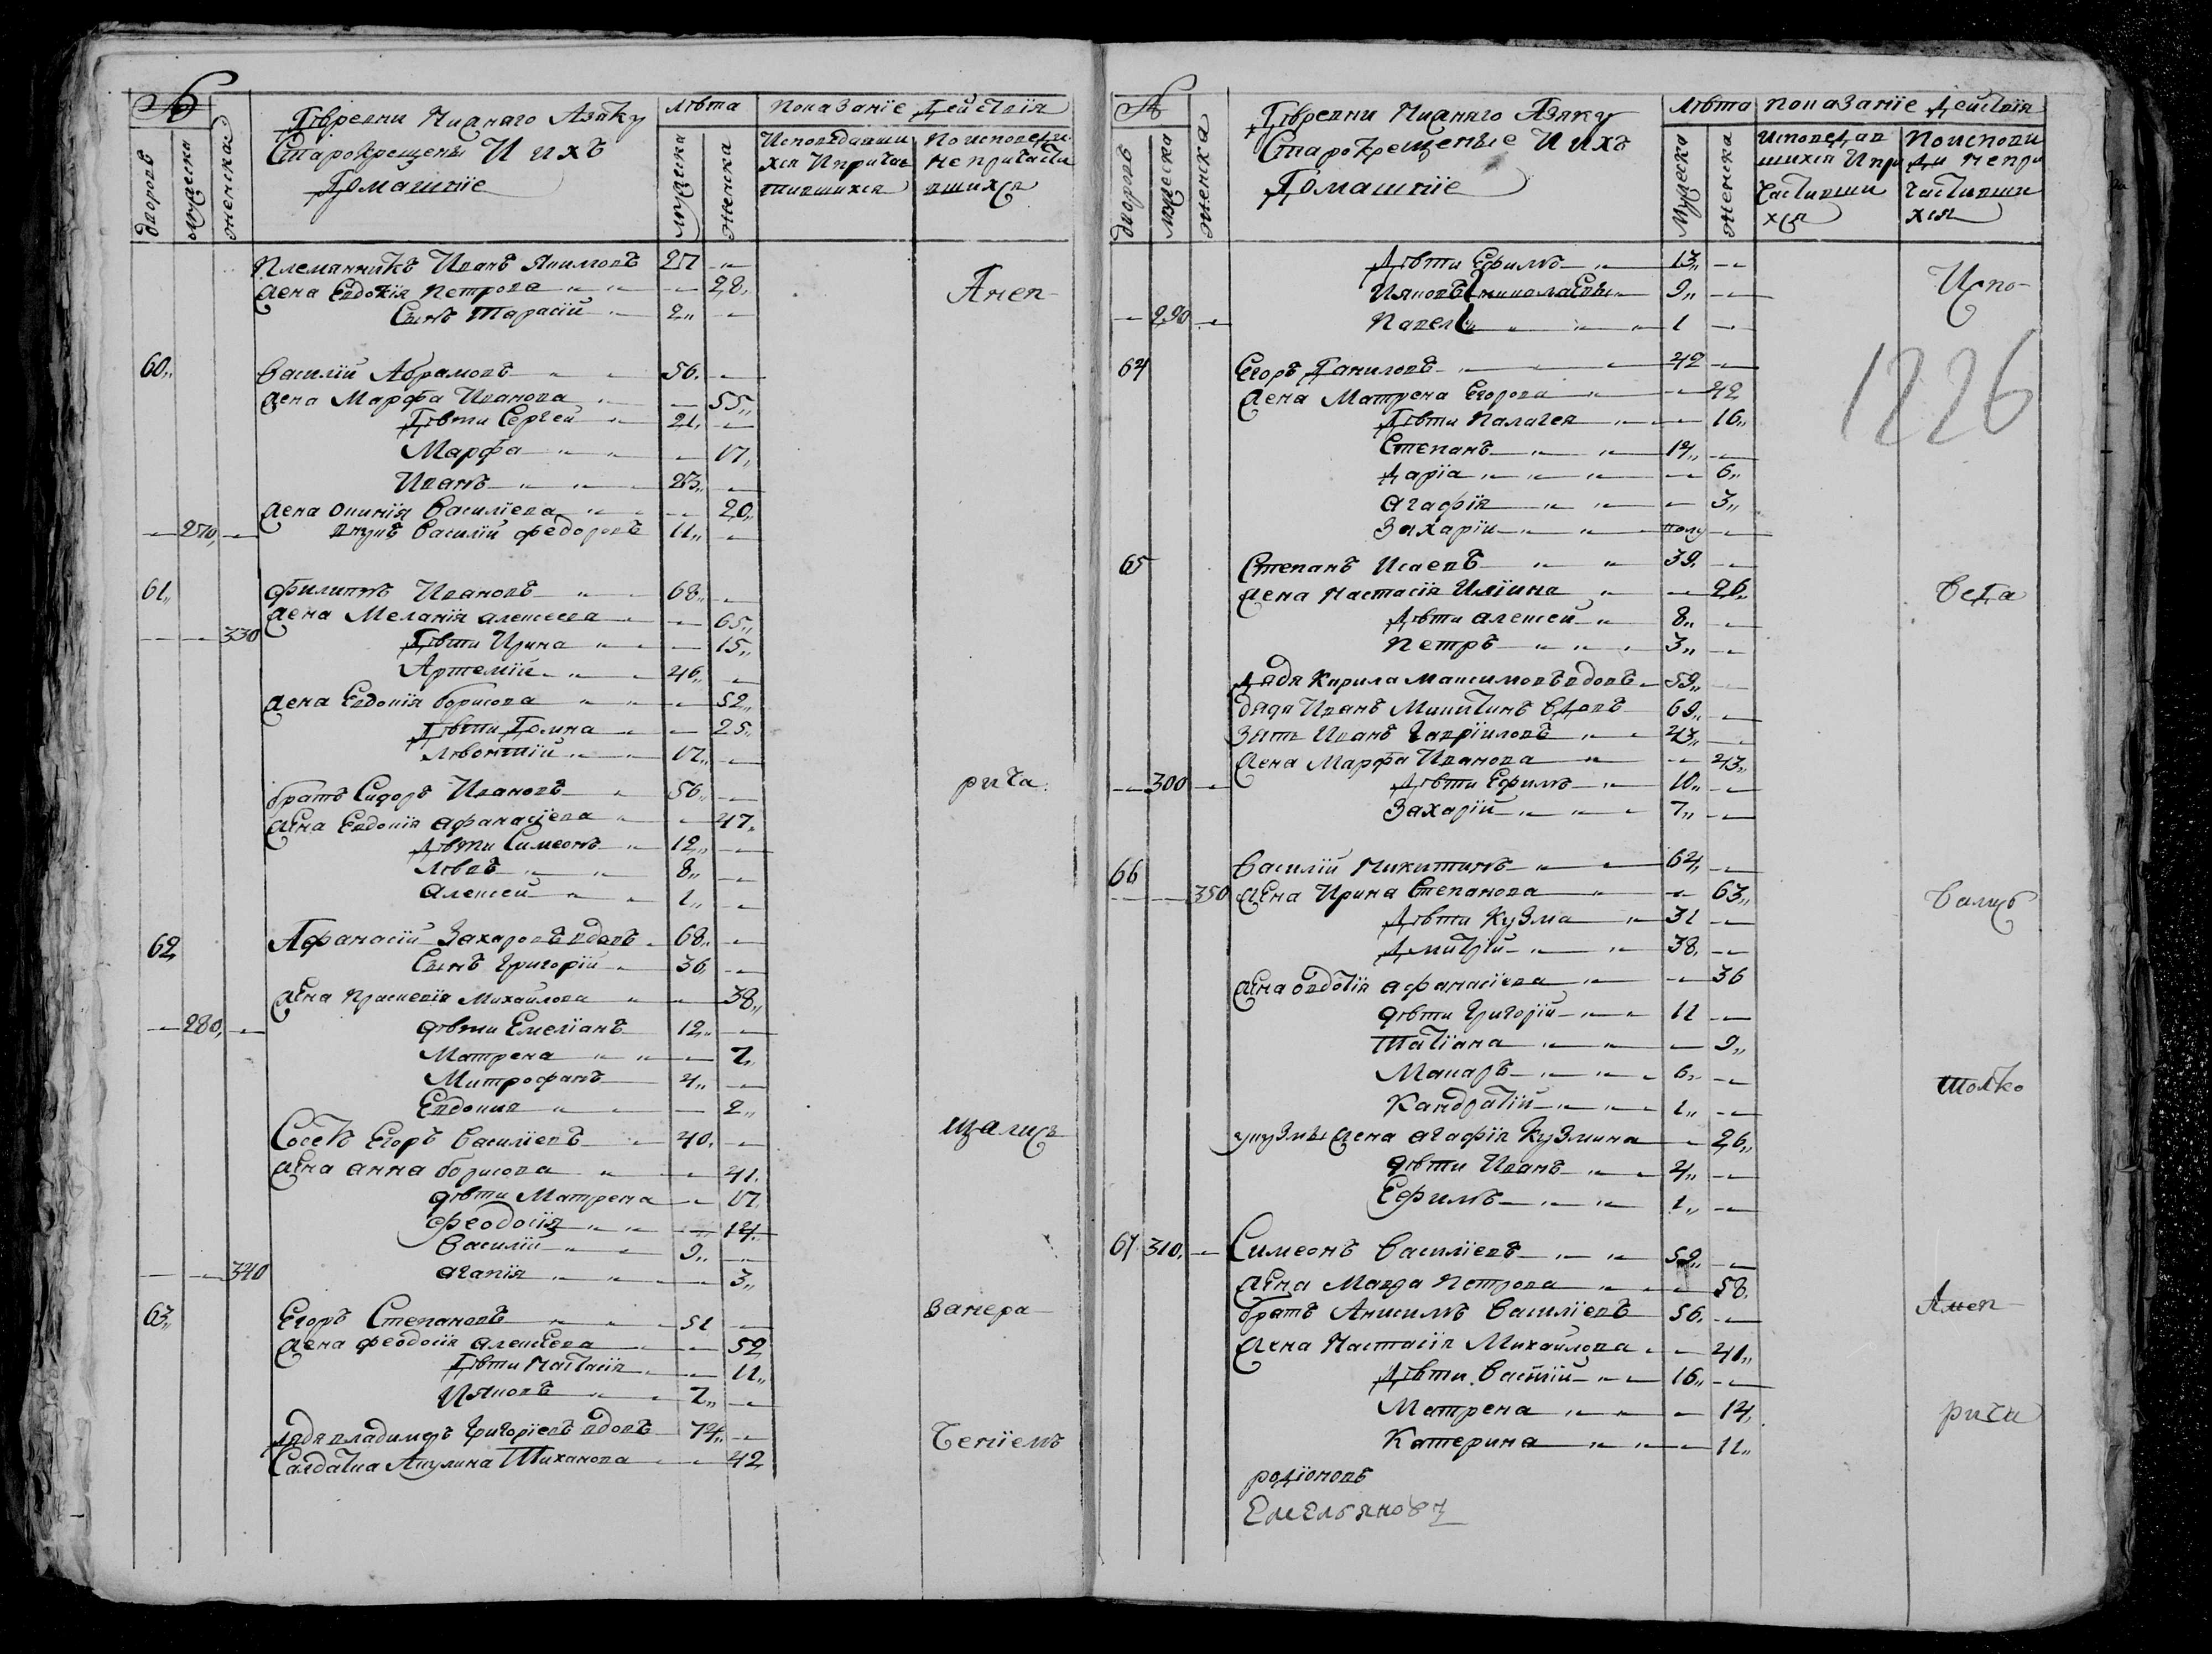 № дворовъ мужеска женска
Деревни Нижняго Азяку
Старокрещены И ихъ
Домашніе
Лѣта мужеска женска
показаніе действія
Исповѣдавши
хся И причас
тившихся
По исповеди
не причасти
вшихся
Племянникъ Иванъ Якимовъ 27
Жена Евдокія Петрова 28
Сынъ Тарасій 2
Анеп
60 Василій Абрамовъ 56
Жена Марфа Иванова 55
Дѣти Сергей 21
Марфа 17
Иванъ 23
Жена Васильева 20
270 внукъ Василій Федоровъ 11
61 Филиппъ Ивановъ 68
Жена Меланія Алексеева 65
330 Дѣти Ирина 15
Артемій 46
Жена Евдокія Борисова 52
Дѣти Домна 25
Лѣвонтій 17
братъ Сидоръ Ивановъ 56
рича
Жена Евдокія Афанасіева 47
Дѣти Симеонъ 12
Лѣвъ 8
Алексей 1
62 Афанасій Захаровъ вдовъ 68
Сынъ Григорій 36
Жена Праскевія Михайлова 38
280 дѣти Емеліанъ 12
Матрена 7
Митрофанъ 4
Евдокия 2
Сосѣдъ Егоръ Василіевъ 40
щались
Жена Анна Борисова 41
дѣти Матрена 17
Феодосія 14
Василій 9
340 Агапія 3
63 Егоръ Степановъ 51
Занера
Жена Феодосія Алексеева 52
Дѣти Настасія 11
Ияковъ 7
дядя владимеръ Григоріевъ вдовъ 74
Ченіемъ
Салдатка Акулина Тиханова 42
№ дворовъ мужеска женска
Деревни Нижняго Азяку
Старокрещеные И ихъ
Домашніе
Лѣта Мужеска женска
показаніе действія
Исповедав
шихся И при
частивши
хся
По испови
ди непри
частивши
хся
Дѣти Ефимъ 13
Испо
Ияковъ Николаевы 9
290 Павелъ 1
1226
64 Егоръ Даниловъ 42
Жена Матрена Егорова 42
Дѣти Палагея 16
Степанъ 14
Дарія 6
Агафія 3
Захарій полу
65 Степанъ Исаевъ 39
Жена Настасія Иліина 26
Веда
Дѣти Алексей 8
Петръ 3
Дядя Кирила Максимовъ вдовъ 59
дядя Иванъ Микитинъ вдовъ 69
Зять Иванъ Гавріиловъ 43
Жена Марфа Иванова 43
300 Дѣти Ефимъ 10
Захарій 7
66 Василій Никитинъ 64
350 Жена Ирина Степанова 63
валис
Дѣти Кузма 31
Дмитрій 38
Жена Овдотія Афанасіева 36
дѣти Григорій 11
Татіана 9
Макаръ 6
толко
Кандратій 1
укузмы Жена Агафія Кузмина 26
дѣти Иванъ 4
Ефимъ 1
67 310 Симеонъ Василіевъ 59
Жена Мавра Петрова 58
братъ Анисимъ Василіевъ 56
Анеп
Жена Настасія Михайлова 41
Дѣти Васіи 16
Матрена 14
рича
Катерина 11
родіоновъ
Емельяновъ